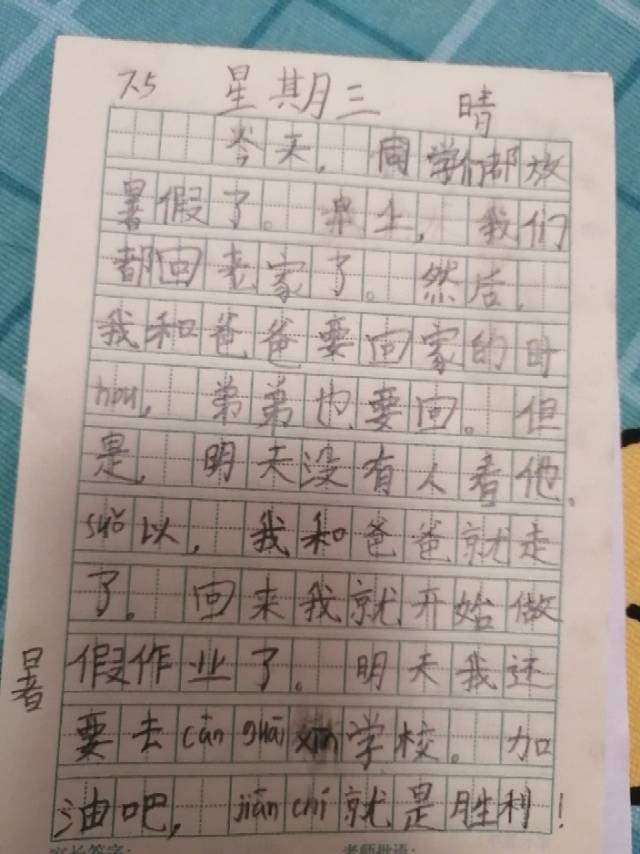 7.5 星期三 晴
今天，同学们都放
暑假了。早上，我们
都回老家了。然后，
我和爸爸要回家的时
hou，弟弟也要回。但
是，明天没有人看他。
suǒ以，我和爸爸就走
了。回来我就开始做
暑
假作业了。明天我还
要去cān guāi xīn学校。加
油吧，jiān chí就是胜利！
家长签字： 老师批语：